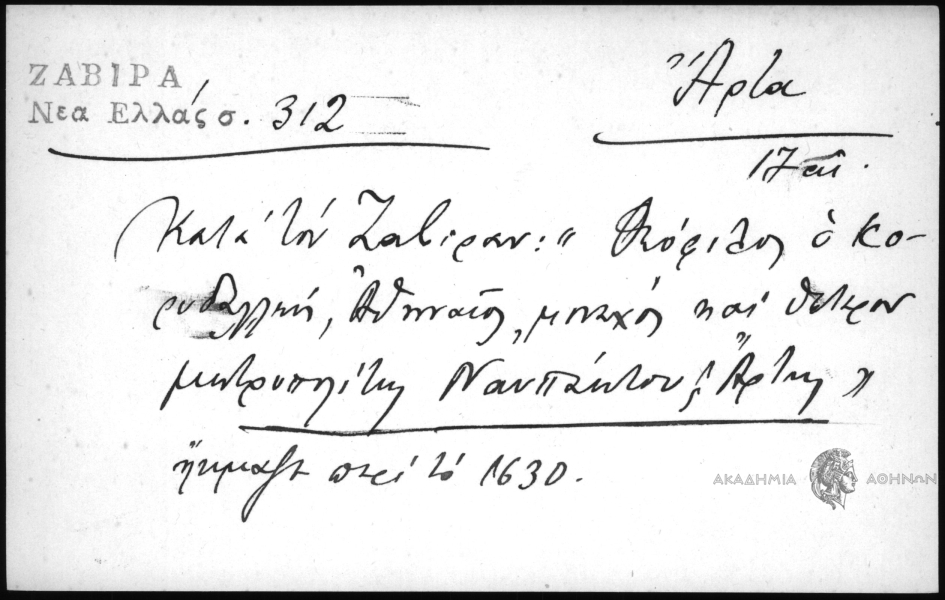 ΖΑΒΙΡΑ
Νεα Ελλάς σ. 312
Ἄρτα
17 αἰ.
Κατὰ τόν Ζαβιραν: " Θεόφιλος ὁ Κο-
ρυδαλλεύς, Ἀθηναῖος, μοναχός καί ὕστερον
μητροπολίτης Ναυπάκτου ϗ Ἄρτης "
ἤκμαζε περί τό 1630.
ΑΚΑΔΗΜΙΑ ΑΘΗΝΩΝ